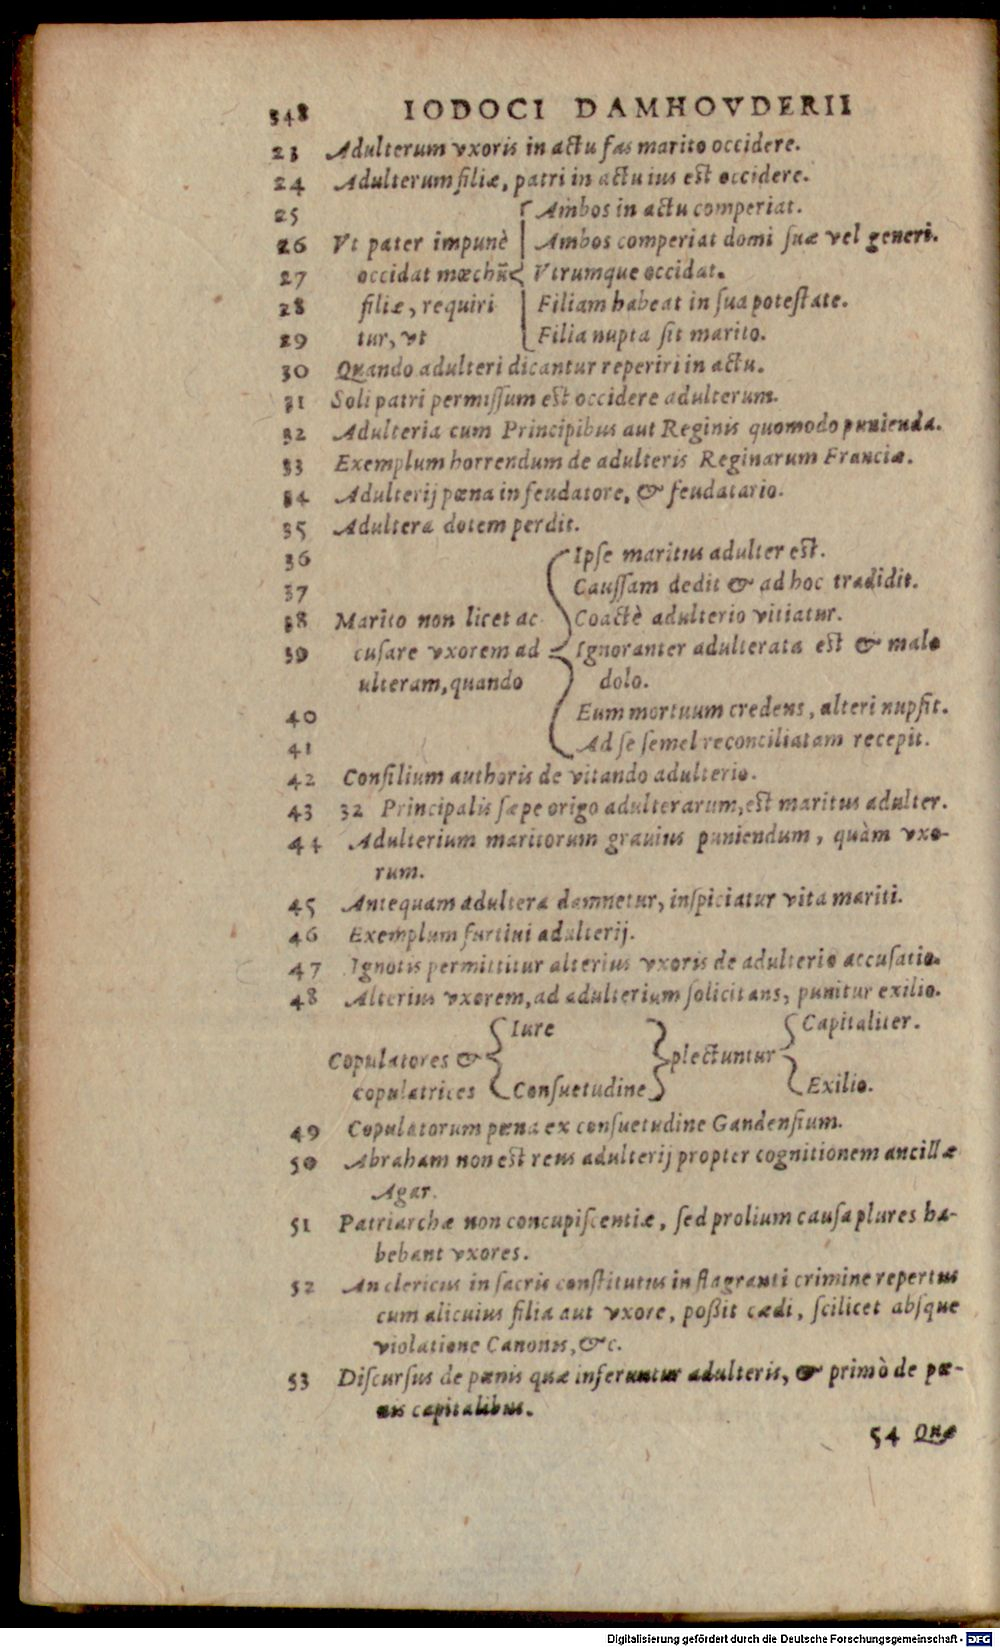 348 IODOCI DAMHOVDERII
23 Adulterum vxoris in actu fas marito occidere.
24 Adulterum filiæ, patri in actu ius est occidere.
25 Ambos in actu comperiat.
26 Vt pater impunè Ambos comperiat domi suæ vel generi.
27 occidat mœchũ Vtrumque occidat.
28 filiæ, requiri Filiam habeat in sua potestate.
29 tur, vt Filia nupta sit marito.
30 Quando adulteri dicantur reperiri in actu.
31 Soli patri permissum est occidere adulterum.
32 Adulteria cum Principibus aut Reginis quomodo punienda.
33 Exemplum horrendum de adulteris Reginarum Franciæ.
34 Adulterij pœna in feudatore, & feudatario.
35 Adultera dotem perdit.
36 Ipse maritus adulter est.
37 Caussam dedit & ad hoc tradidit.
38 Marito non licet ac Coactè adulterio vitiatur.
39 cusare vxorem ad Ignoranter adulterata est & malo
ulteram, quando dolo.
40 Eum mortuum credens, alteri nupsit.
41 Ad se semel reconciliatam recepit.
42 Consilium authoris de vitando adulterio.
43 32 Principalis sæpe origo adulterarum, est maritus adulter.
44 Adulterium maritorum grauius puniendum, quàm vxo-
rum.
45 Antequam adultera damnetur, inspiciatur vita mariti.
46 Exemplum furtiui adulterij.
47 Ignotis permittitur alterius vxoris de adulterio accusatio.
48 Alterius vxorem, ad adulterium solicitans, punitur exilio.
Iure Capitaliter.
Copulatores & plectuntur
copulatrices Consuetudine Exilio.
49 Copulatorum pœna ex consuetudine Gandensium.
50 Abraham non est reus adulterij propter cognitionem ancillæ
Agar.
51 Patriarchæ non concupiscentiæ, sed prolium causa plures ha-
bebant vxores.
52 An clericus in sacris constitutus in flagranti crimine repertus
cum alicuius filia aut vxore, poßit cædi, scilicet absque
violatione Canonis, &c.
53 Discursus de pœnis quæ inferuntur adulteris, & primò de pœ-
nis capitalibus.
54 Quæ
Digitalisierung gefördert durch die Deutsche Forschungsgemeinschaft - DFG